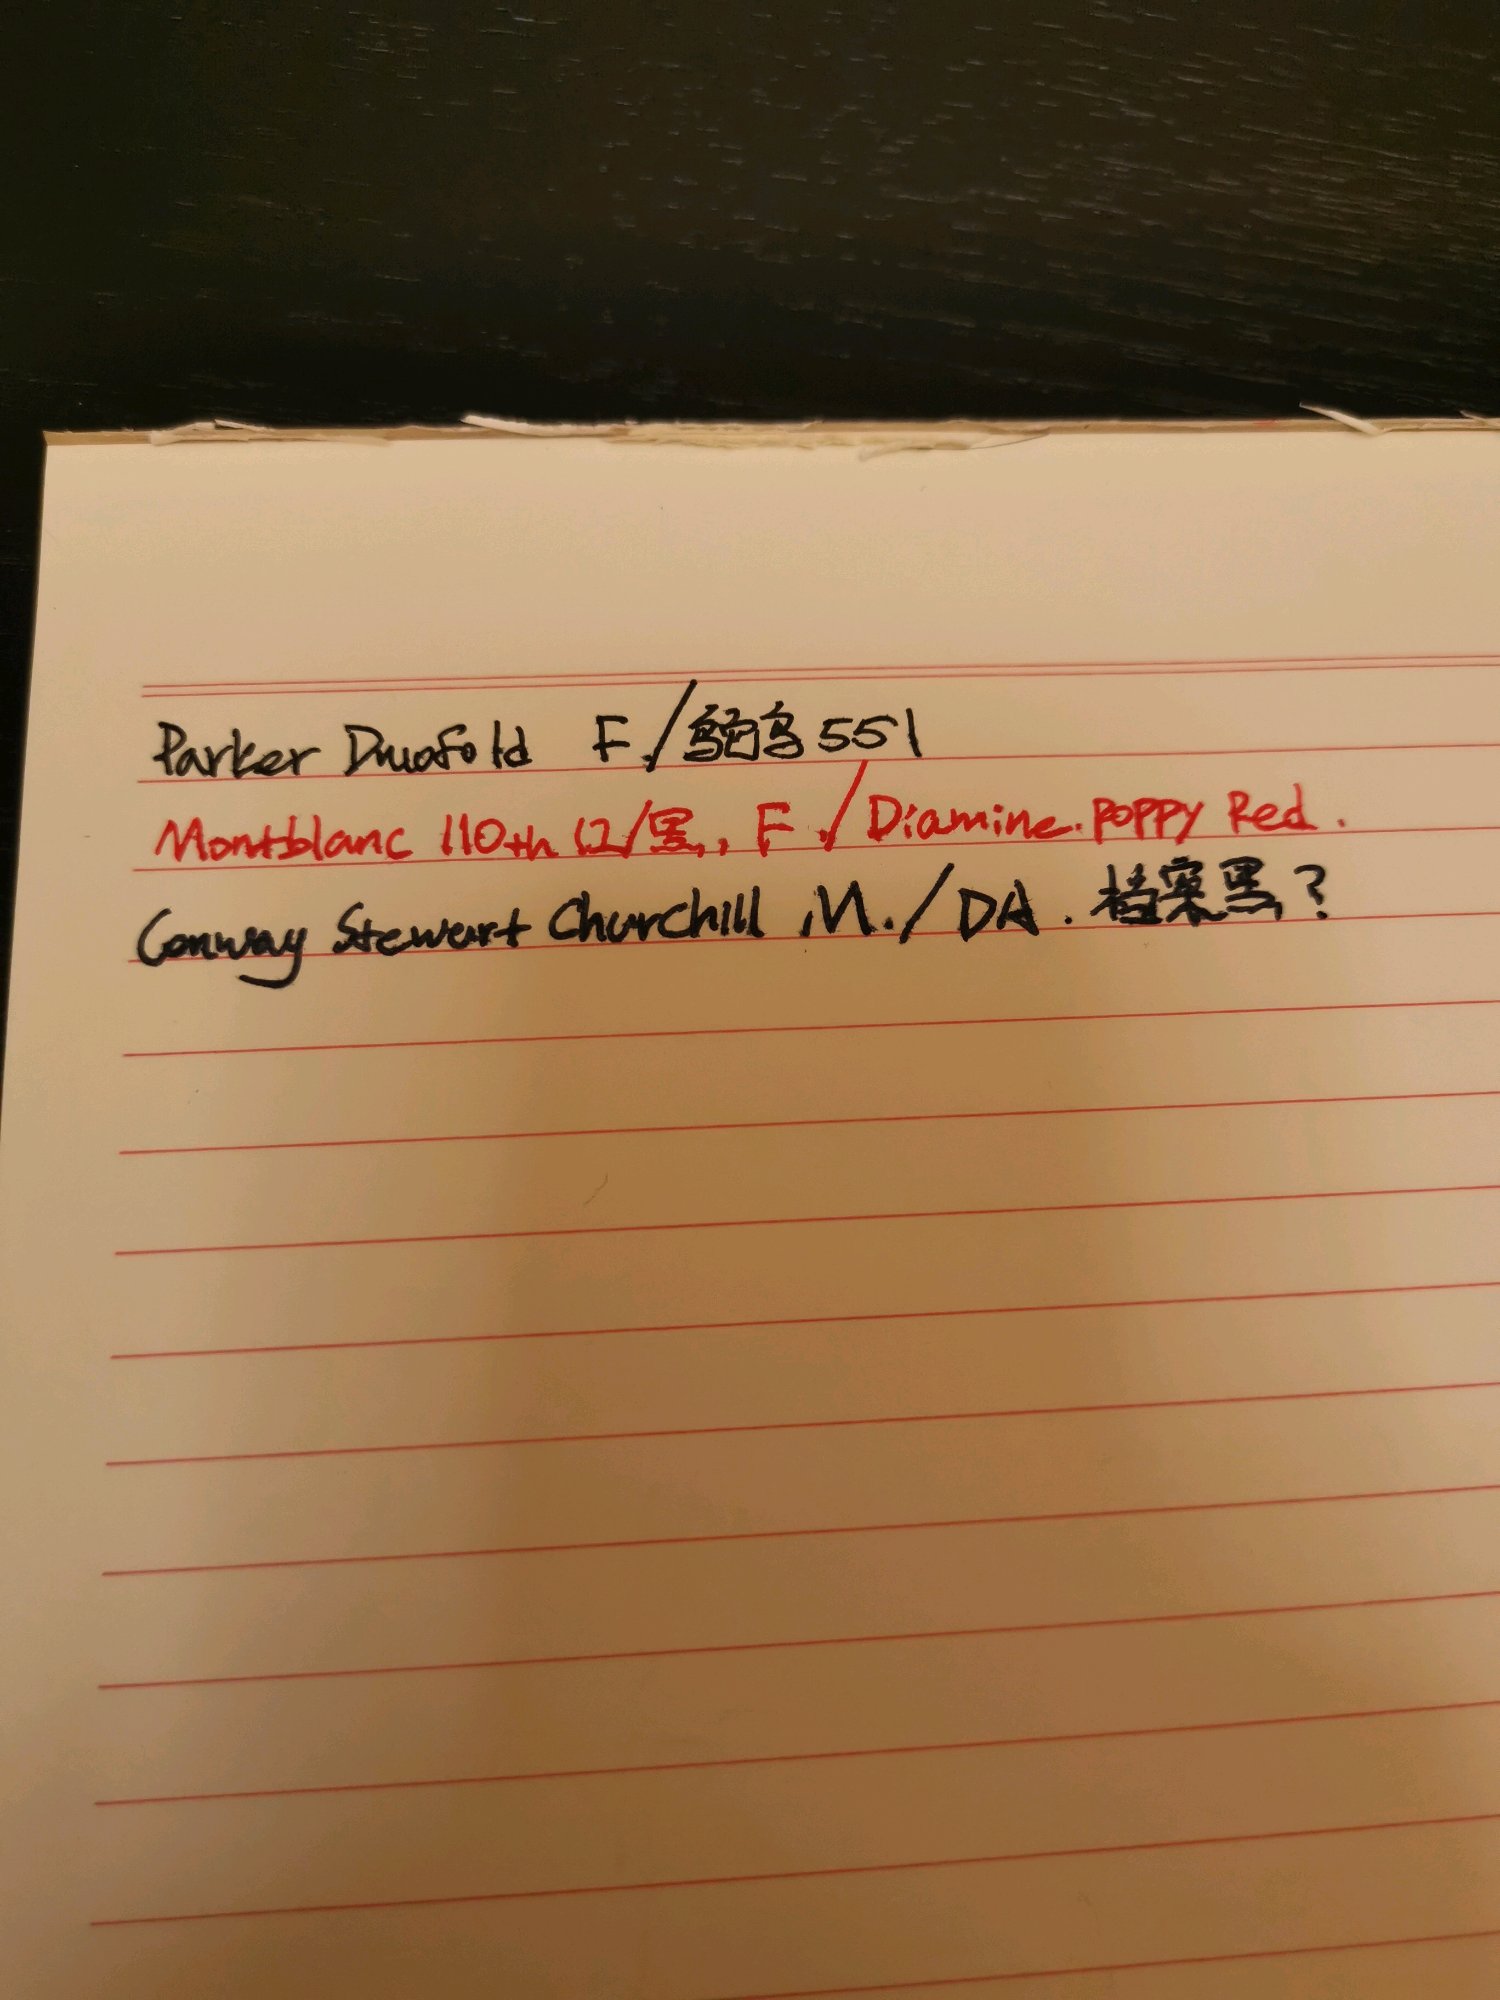 Parker Duofold F./鸵鸟551
Montblanc 110th 红/黑, F./Diamine. Poppy Red.
Conway Stewart Churchill M./DA. 档案黑?